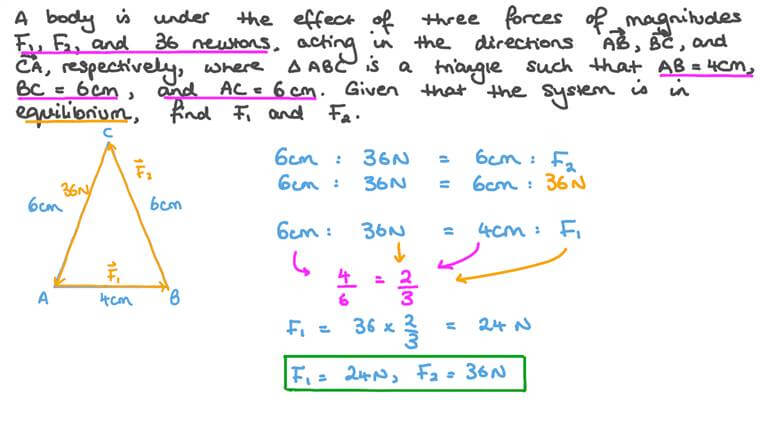 A body is under the effect of three forces of magnitudes
F₁, F₂, and 36 newtons, acting in the directions A⃗B⃗, B⃗C⃗, and
C⃗A⃗, respectively, where △ABC is a triangle such that AB = 4cm,
BC = 6cm, and AC = 6cm. Given that the system is in
equilibrium, find F₁ and F₂.
C
36N
F⃗₂
6cm
6cm
F⃗₁
A
4cm
B
6cm : 36N = 6cm : F₂
6cm : 36N = 6cm : 36N
6cm : 36N = 4cm : F₁
4/6 = 2/3
F₁ = 36 × 2/3 = 24 N
F₁ = 24N, F₂ = 36N